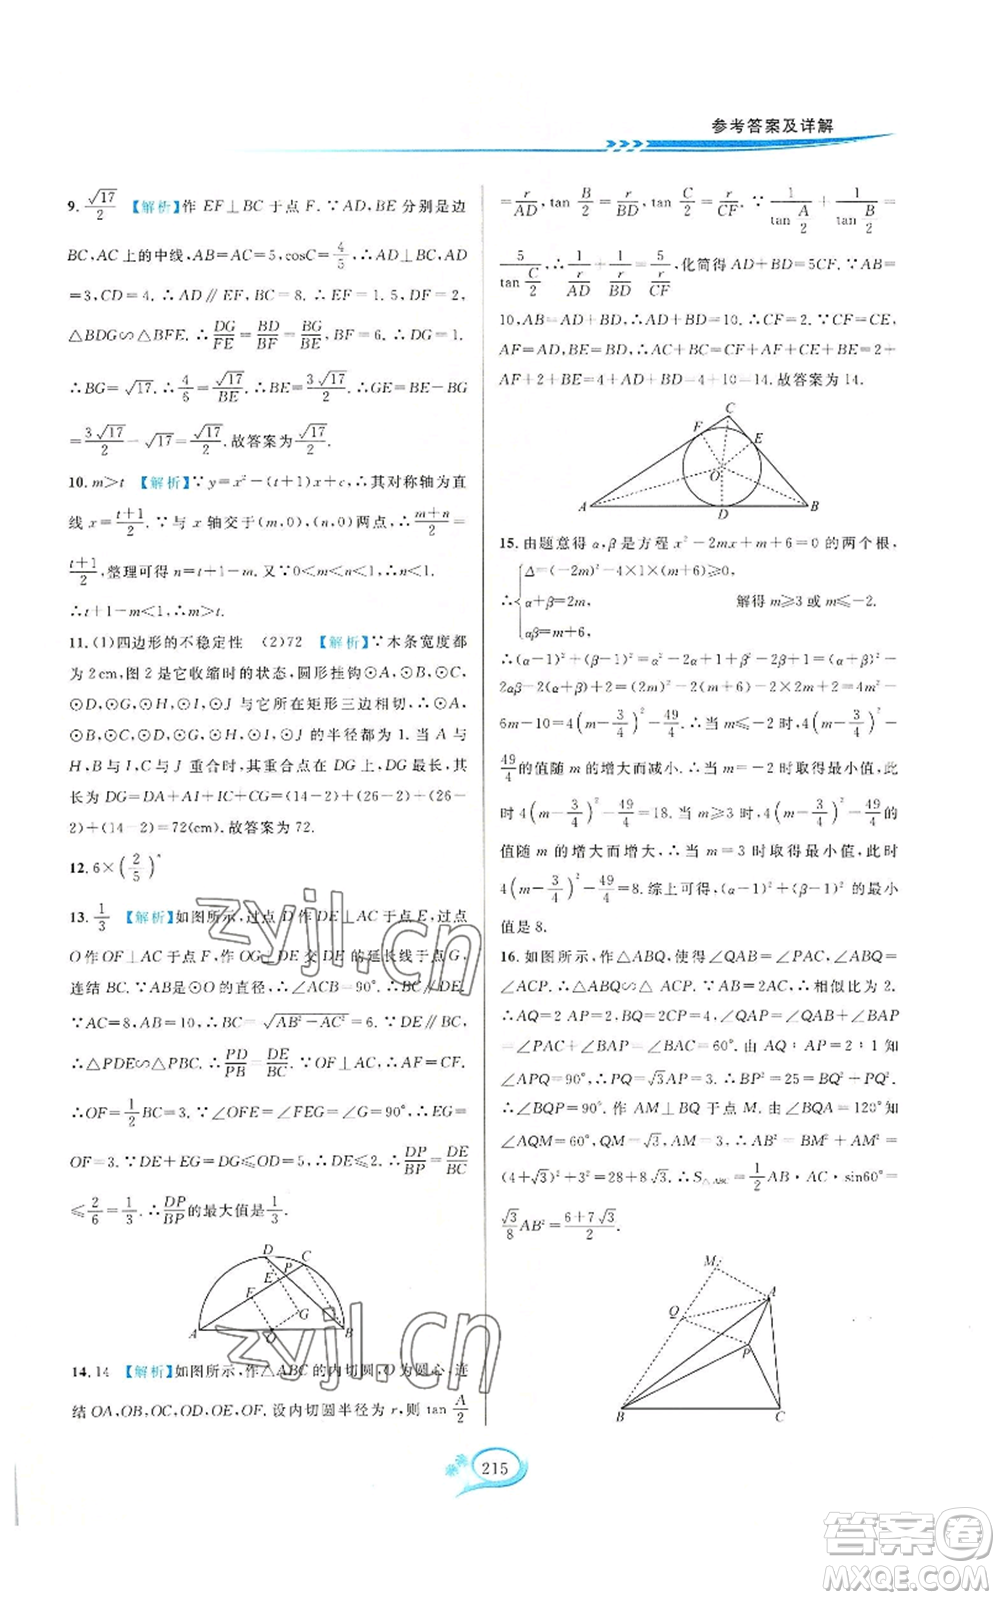 参考答案及详解
9. √17/2 【解析】作 EF⊥BC 于点 F. ∵AD,BE 分别是边
BC,AC 上的中线,AB=AC=5,cosC=4/5,∴AD⊥BC,AD
=3,CD=4. ∴AD∥EF,BC=8. ∴EF=1.5,DF=2,
△BDG∽△BFE. ∴DG/FE=BD/BF=BG/BE,BF=6. ∴DG=1.
∴BG=√17,∴4/6=√17/BE,∴BE=3√17/2. ∴GE=BE-BG
=3√17/2-√17=√17/2. 故答案为√17/2.
10. m>t 【解析】∵y=x²-(t+1)x+c,∴其对称轴为直
线 x=(t+1)/2. ∵与 x 轴交于(m,0),(n,0)两点,∴(m+n)/2=
(t+1)/2,整理可得 n=t+1-m. 又∵0<m<1,n<1,
∴t+1-m<1,∴m>t.
11. (1)四边形的不稳定性 (2)72 【解析】∵木条宽度都
为 2 cm,图 2 是它收缩时的状态,圆形挂钩⊙A,⊙B,⊙C,
⊙D,⊙E,⊙F,⊙I,⊙J 与它所在矩形三边相切,∴⊙A,
⊙B,⊙C,⊙D,⊙E,⊙F,⊙I,⊙J 的半径都为 1. 当 A 与
B,D 与 E,I 与 F,C 与 J 重合时,其在 DG 上,DG 最长,其
长为 DG=DA+AI+IC+CG=(14-2)+(26-2)+(26-
2)+(14-2)=72(cm). 故答案为 72.
12. 6×(2/5)ⁿ
13. 1/3 【解析】如图所示,过点 D 作 DE⊥AC 于点 E,过点
O 作 OF⊥AC 于点 F,作 OG⊥DE 交 DE 的延长线于点 G,
连结 BC. ∵AB 是⊙O 的直径,∴∠ACB=90°. ∴BC⊥AC.
∵AC=8,AB=10,∴BC=√(AB²-AC²)=6. ∵DE∥BC,
∴△PDE∽△PBC. ∴PD/PB=DE/BC. ∵OF⊥AC,∴AF=CF.
∴OF=1/2BC=3. ∵∠OFE=∠FEG=∠G=90°,∴EG=
OF=3. ∵DE+EG≤OD=5,∴DE≤2. ∴DP/BP=DE/BC
≤2/6=1/3. ∴DP/BP的最大值是1/3.
D C P E F G A O B
14. 14 【解析】如图所示,作△ABC 的内切圆,O 为圆心,连
结 OA,OB,OC,OD,OE,OF. 设内切圆半径为 r,则 tan A/2
=r/AD,tan B/2=r/BD,tan C/2=r/CF. ∵1/tan A/2+1/tan B/2=
5/tan C/2,∴1/(r/AD)+1/(r/BD)=5/(r/CF),化简得 AD+BD=5CF. ∵AB=
10,AB=AD+BD,∴AD+BD=10. ∴CF=2. ∵CF=CE,
AF=AD,BE=BD,∴AC+BC=AF+CF+CE+BE=2+
AF+2+BE=4+AD+BD=4+10=14. 故答案为 14.
C F E O A D B
15. 由题意得 α,β 是方程 x²-2mx+m+6=0 的两个根,
∴{Δ=(-2m)²-4×1×(m+6)≥0,
α+β=2m, 解得 m≥3 或 m≤-2.
αβ=m+6,
∴(α-1)²+(β-1)²=α²+β²-2(α+β)+2=(α+β)²-
2αβ-2(α+β)+2=(2m)²-2(m+6)-2(2m)+2=4m²-
6m-10=4(m-3/4)²-49/4. ∴当 m≤-2 时,4(m-3/4)²-
49/4的值随 m 的增大而减小. ∴当 m=-2 时取得最小值,此
时 4(m-3/4)²-49/4=18. 当 m≥3 时,4(m-3/4)²-49/4的
值随 m 的增大而增大. ∴当 m=3 时取得最小值,此时
4(m-3/4)²-49/4=8. 综上可得,(α-1)²+(β-1)²的最小
值是 8.
16. 如图所示,作△ABQ,使得∠QAB=∠PAC,∠ABQ=
∠ACP. ∴△ABQ∽△ACP. ∵AB=2AC,∴相似比为 2.
∴AQ=2AP=2√3,BQ=2CP=4,∠QAP=∠QAB+
∠BAP=∠PAC+∠BAP=∠BAC=60°. 由 AQ∶AP=2∶1
知∠APQ=90°,∴PQ=√3AP=3. ∴BP²=25=BQ²+PQ².
∴∠BQP=90°. 作 AM⊥BQ 于点 M,由∠BQA=120°知
∠AQM=60°,QM=√3,AM=3,∴AB²=BM²+AM²=
(4+√3)²+3²=28+8√3. ∴S△ABC=1/2AB·AC·sin60°=
√3/8AB²=(6+7√3)/2.
M A Q P B C
215
zyjl.cn
zyjl.cn
答案卷
MXQE.COM